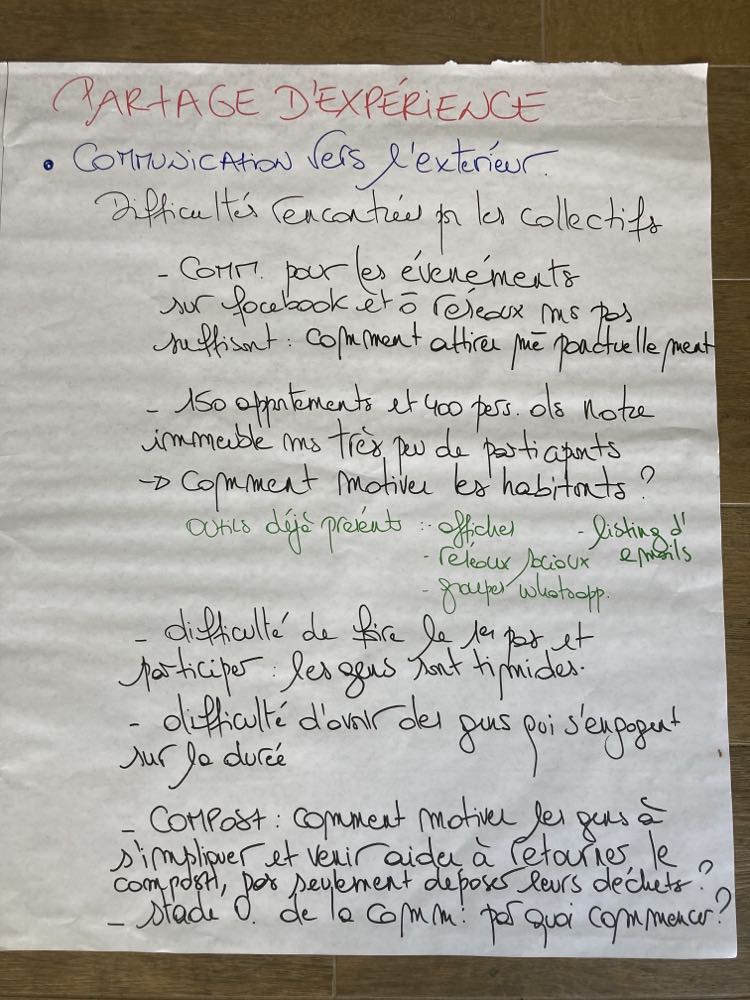 PARTAGE D'EXPÉRIENCE
• COMMUNICATION vers l'exterieur.
Difficultés rencontrées pr les collectifs
- COMM. pour les évenéments
sur facebook et ō réseaux ms pas
suffisant : comment attirer mē ponctuellement
- 150 appartements et 400 pers. ds notre
immeuble ms très peu de participants
-> Comment motiver les habitants ?
OUTILS déjà présents : - affiches - listing d'
- réseaux sociaux emails
- groupes whatsapp.
- difficulté de faire le 1er pas et
participer : les gens sont timides.
- difficulté d'avoir des gens qui s'engagent
sur la durée
- COMPOST : comment motiver les gens à
s'impliquer et venir aider à retourner le
compost, pas seulement déposer leurs déchets ?
- stade 0. de la comm : par quoi commencer ?